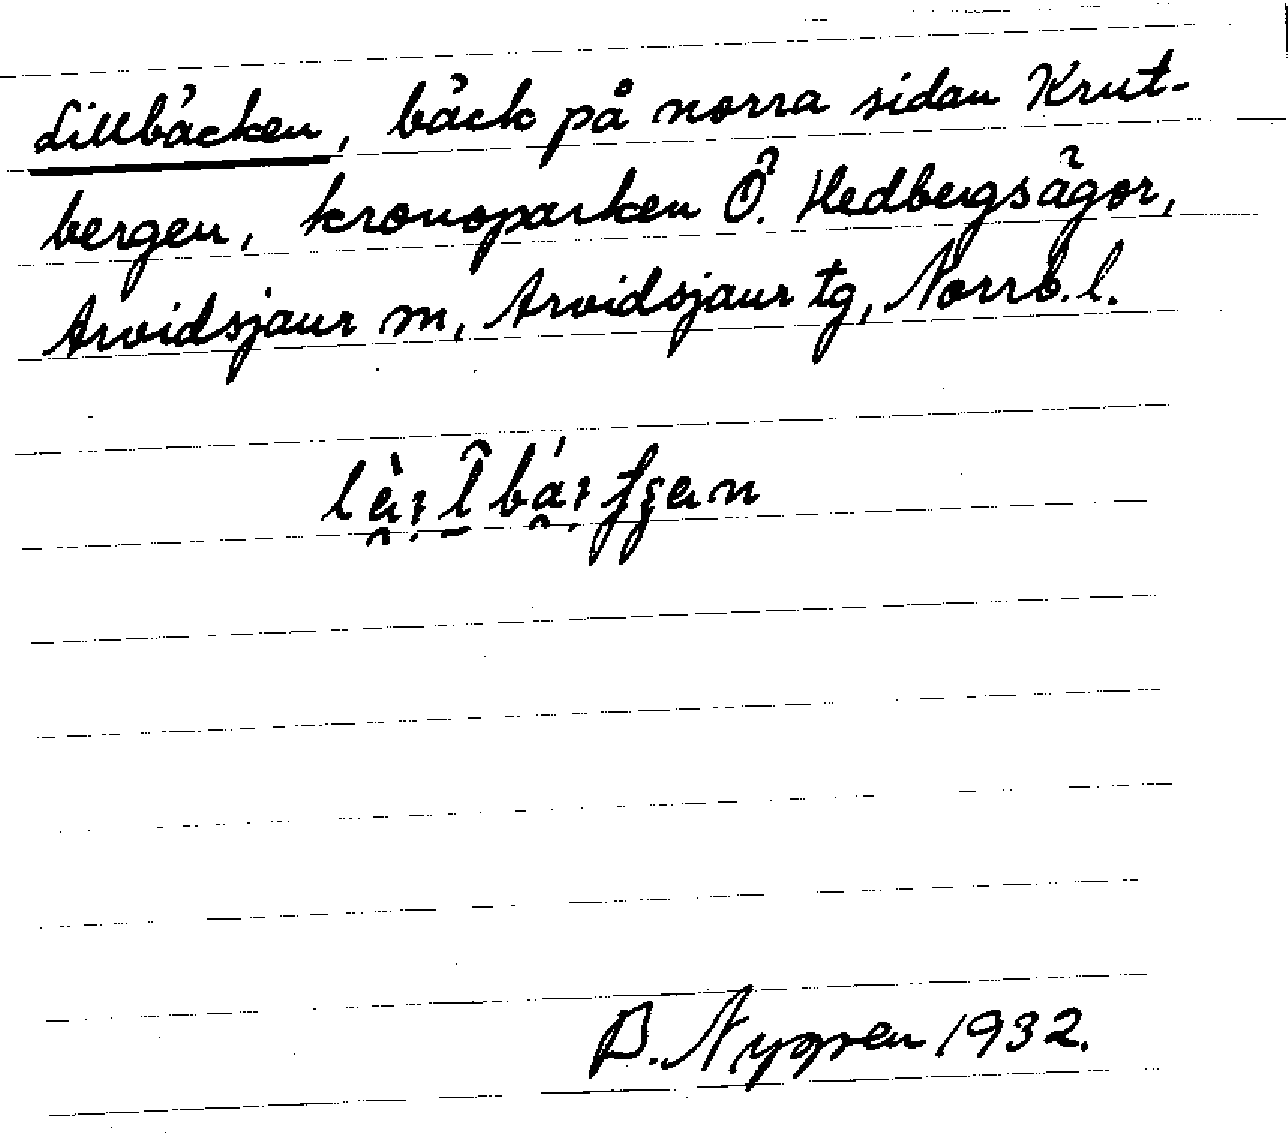 Lillbäcken, bäck på norra sidan Krut-
bergen, kronoparken Ö. Hedbergsägor,
Arvidsjaur m, Arvidsjaur tg, Norrb. l.
B. Nygren 1932.